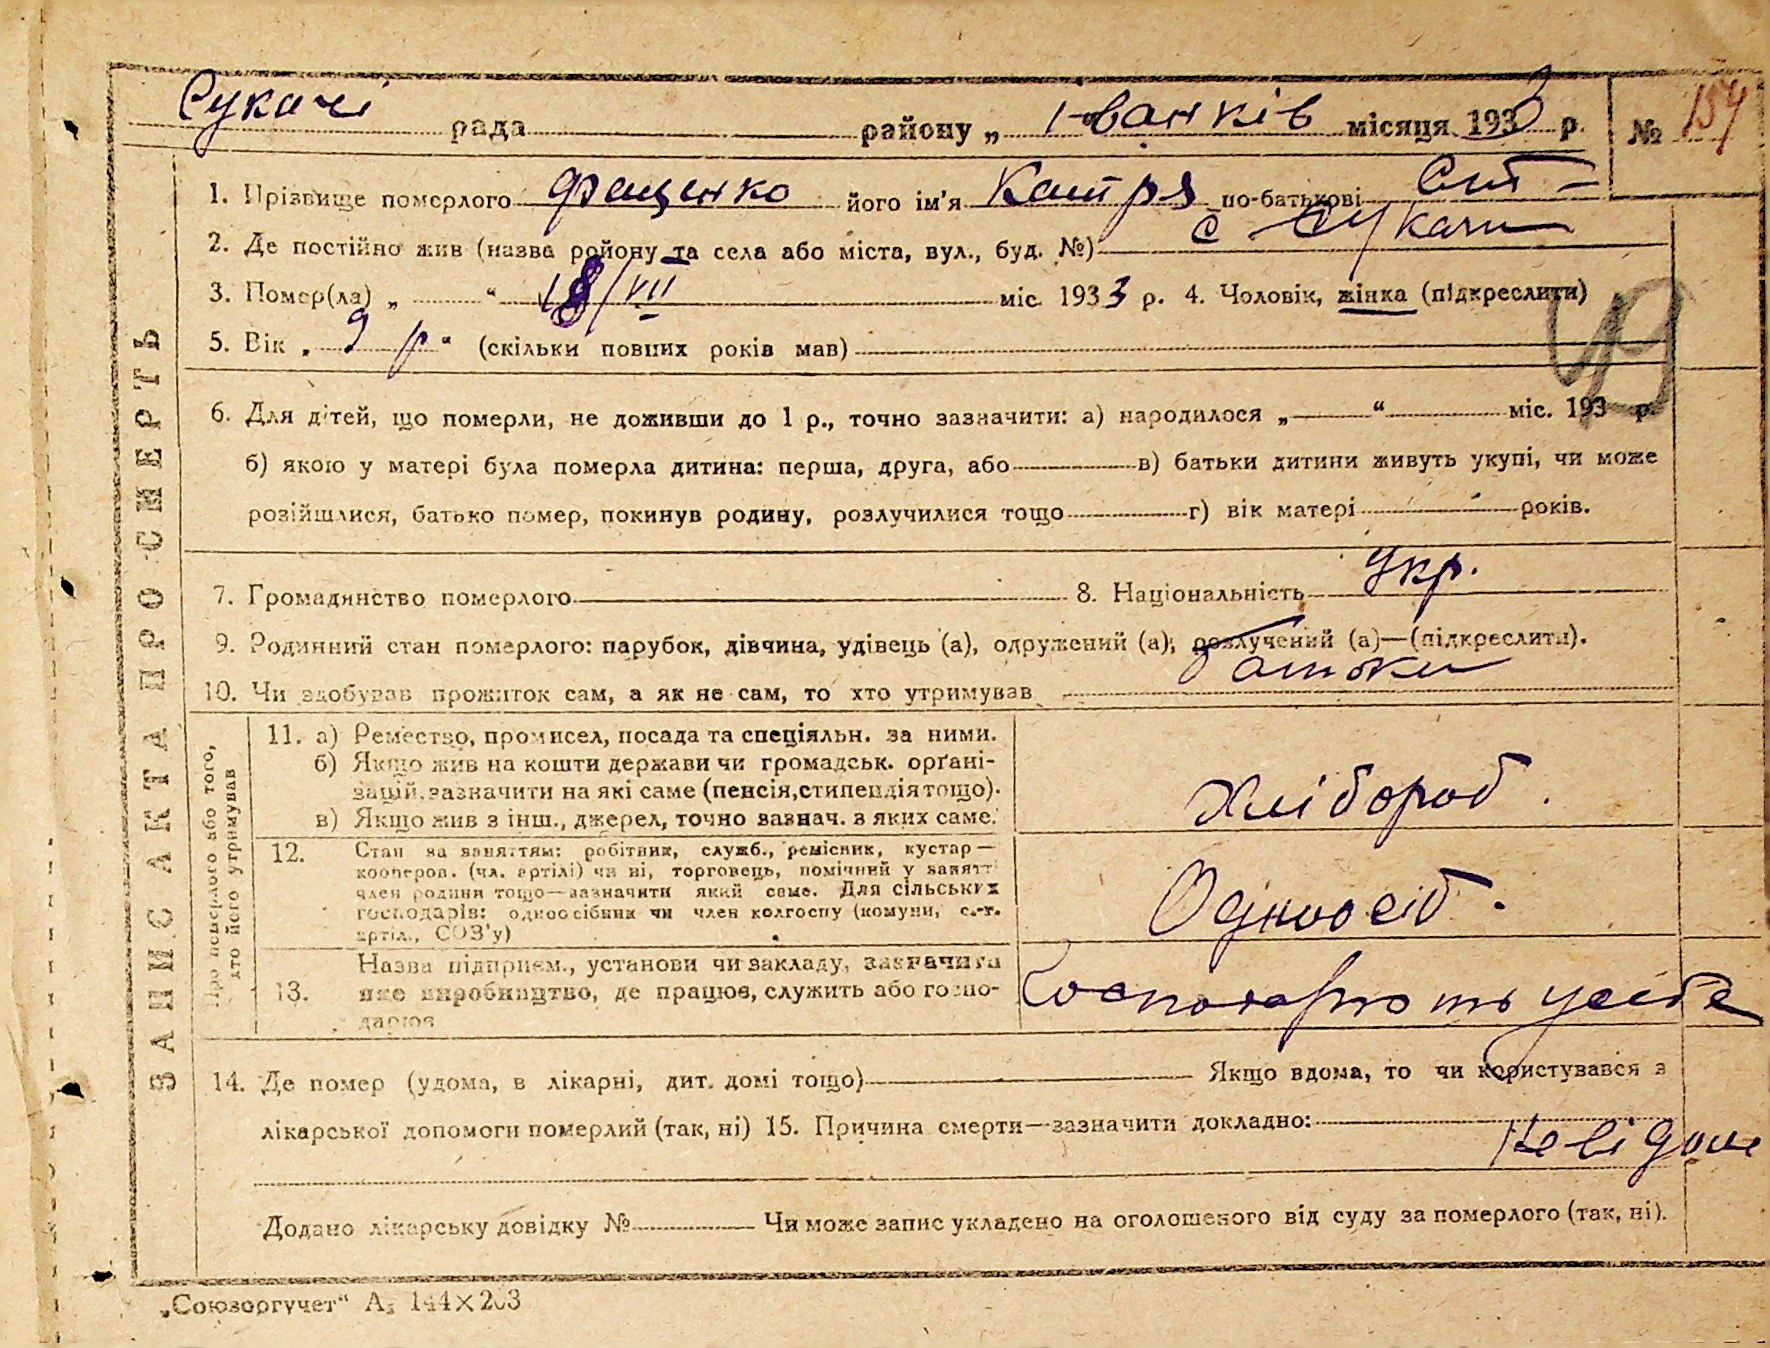 Сукачі рада району „ Іванків місяця 1933 р. № 154
1. Прізвище померлого Фещенко його ім'я Катря по-батькові
2. Де постійно жив (назва ройону та села або міста, вул., буд. №) с Сукачі
3. Помер(ла) „ “ 18/VII міс. 1933 р. 4. Чоловік, жінка (підкреслити)
5. Вік „ 9 р “ (скільки повних років мав)
6. Для дітей, що померли, не доживши до 1 р., точно зазначити: а) народилося „ “ міс. 193 р.
б) якою у матері була померла дитина: перша, друга, або в) батьки дитини живуть укупі, чи може
розійшлися, батько помер, покинув родину, розлучилися тощо г) вік матері років.
7. Громадянство померлого 8. Національність Укр.
9. Родинний стан померлого: парубок, дівчина, удівець (а), одружений (а), розлучений (а)—(підкреслити).
10. Чи здобував прожиток сам, а як не сам, то хто утримував батьки
ЗАПИСКА ПРО СМЕРТЬ
Про померлого або того, хто його утримував
11. а) Ремество, промисел, посада та спеціяльн. за ними.
б) Якщо жив на кошти держави чи громадськ. орґані-
зацій, зазначити на які саме (пенсія, стипендія тощо).
в) Якщо жив з інш., джерел, точно зазнач. з яких саме.
Хлібороб.
12. Стан за заняттям: робітник, служб., ремісник, кустар—
кооперов. (чл. артілі) чи ні, торговець, помічний у занятті
член родини тощо—зазначити який саме. Для сільських
господарів: одноосібник чи член колгоспу (комуни, с.-г.
артіл., СОЗ'у)
Одноосіб.
13. Назва підприєм., установи чи закладу, зазначити
яке виробництво, де працює, служить або госпо-
дарює
Господарють у себе
14. Де помер (удома, в лікарні, дит. домі тощо) Якщо вдома, то чи користувався з
лікарської допомоги померлий (так, ні) 15. Причина смерти—зазначити докладно:
Невідоме
Додано лікарську довідку № Чи може запис укладено на оголошеного від суду за померлого (так, ні).
„Союзоргучет“ А₅ 144×203